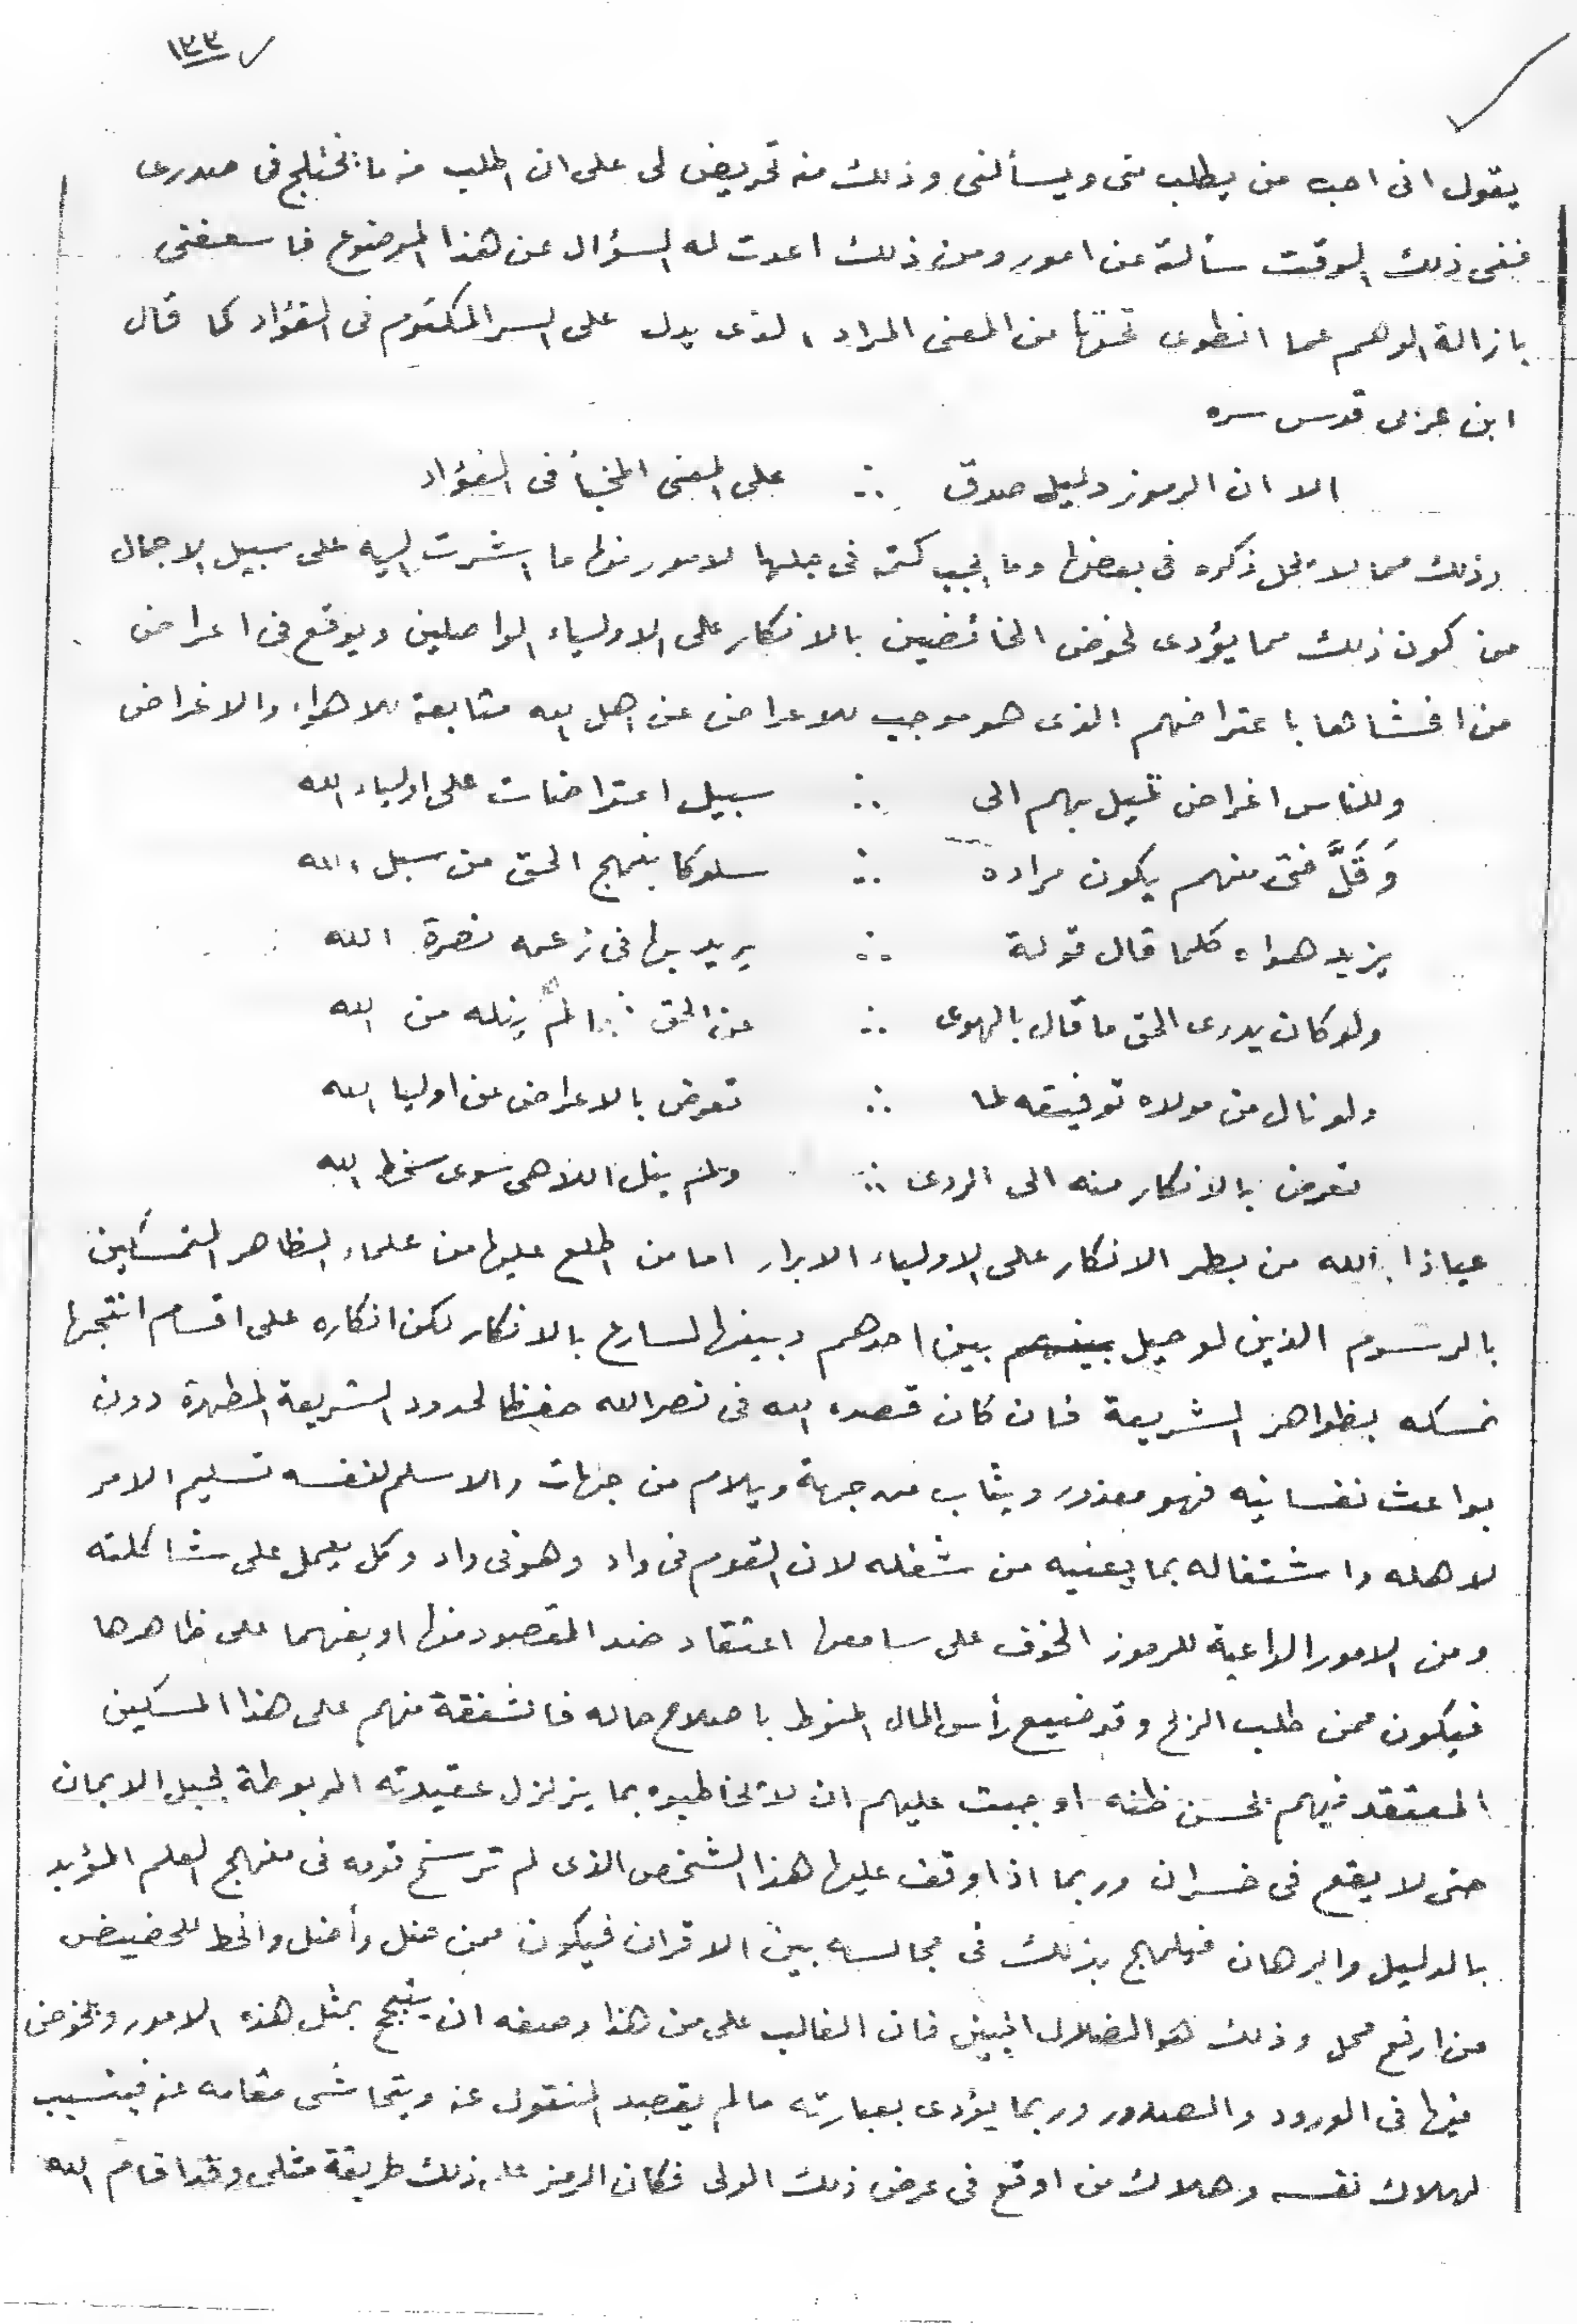 ١٣٣
يقول انى احب من يطلب منى ويسألنى وذلك منه تحريض لى على ان اطلب منه ما يختلج فى صدرى
ففى ذلك الوقت سألته عن امور ومن ذلك اعدت له السؤال عن هذا الموضوع فاسعفنى
بازالة الوهم عما انطوى تحتها من المعنى المراد الذى يدل على السر المكتوم فى الفؤاد كما قال
ابن عربى قدس سره
الا ان الرموز دليل صدق ∴ على المعنى المخبأ فى الفؤاد
وذلك مما لا يحل ذكره فى بعضها وما يجب كتمه فى جلها لامور منها ما اشرت اليه على سبيل الاجمال
من كون ذلك مما يؤدى لخوض الخائضين بالانكار على الاولياء الواصلين ويوقع فى اعراض
من افشاها باعتراضهم الذى هو موجب للاعراض عن اهل الله متابعة للاهواء والاغراض
وللناس اغراض تميل بهم الى ∴ سبيل اعتراضات على اولياء الله
وَقَلَّ فتى منهم يكون مراده ∴ سلوكا بنهج الحق من سبل الله
يزيد هواه كلما قال قولة ∴ يريد بها فى زعمه نصرة الله
ولو كان يدرى الحق ما قال بالهوى ∴ عن الحق لم ينله من الله
ولو نال من مولاه توفيقه لما ∴ تعرض بالاعراض عن اوليا الله
تعرض بالانكار منه الى الردى ∴ ولم ينل اللاهى سوى سخط الله
عياذا بالله من بطر الانكار على الاولياء الابرار اما من اطلع عليها من علماء الظاهر المتمسكين
بالرسوم الذين لو حيل بينهم بين احدهم وبينها لسارع بالانكار لكن انكاره على اقسام انتجها
تمسكه بظواهر الشريعة فان كان قصده الله فى نصر الله حفظا لحدود الشريعة المطهرة دون
بواعث نفسانيه فهو معذور ويثاب من جهة ويلام من جهات والاسلم لنفسه تسليم الامر
لاهله واشتغاله بما يعنيه من شغله لان القوم فى واد وهو فى واد وكل يعمل على شاكلته
ومن الامور الداعية للرموز الخوف على سامعها اعتقاد ضد المقصود منها او يفهما على ظاهرها
فيكون ممن طلب الربح وقد ضيع رأس المال المنوط باصلاح حاله فالشفقة منهم على هذا المسكين
المعتقد فيهم بحسن ظنه اوجبت عليهم ان لا يخاطبوه بما يزلزل عقيدته المربوطة بحبل الايمان
حتى لا يقع فى خسران وربما اذا وقف عليها هذا الشخص الذى لم ترسخ قدمه فى منهج العلم المؤيد
بالدليل والبرهان فيلهج بذلك فى مجالسه بين الاقران فيكون ممن ضل وأضل وانحط للحضيض
من ارفع محل وذلك هو الضلال المبين فان الغالب على من هذا وصفه ان يتبجح بمثل هذه الامور ويخوض
فيها فى الورود والصدور وربما يؤدى بعبارته ما لم يقصد المنقول عنه ويتحاشى مقامه عنه فيتسبب
لهلاك نفسه وهلاك من اوقع فى عرض ذلك الولى فكان الرمز على ذلك طريقة مثلى وقد اقام الله